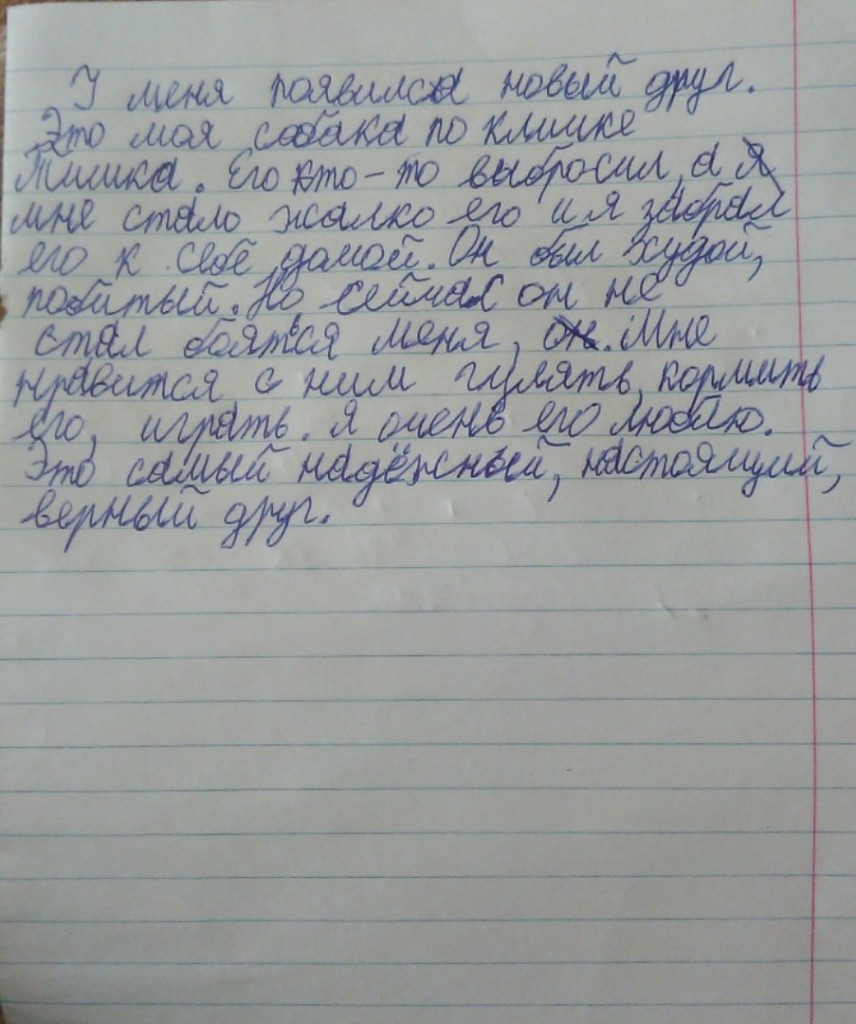 У меня появился новый друг.
Это моя собака по кличке
Тишка. Его кто-то выбросил, а
мне стало жалко его и я забрал
его к себе домой. Он был худой,
побитый. Но сейчас он не
стал боятся меня, он. Мне
нравится с ним гулять, кормить
его, играть. Я очень его люблю.
Это самый надёжный, настоящий,
верный друг.